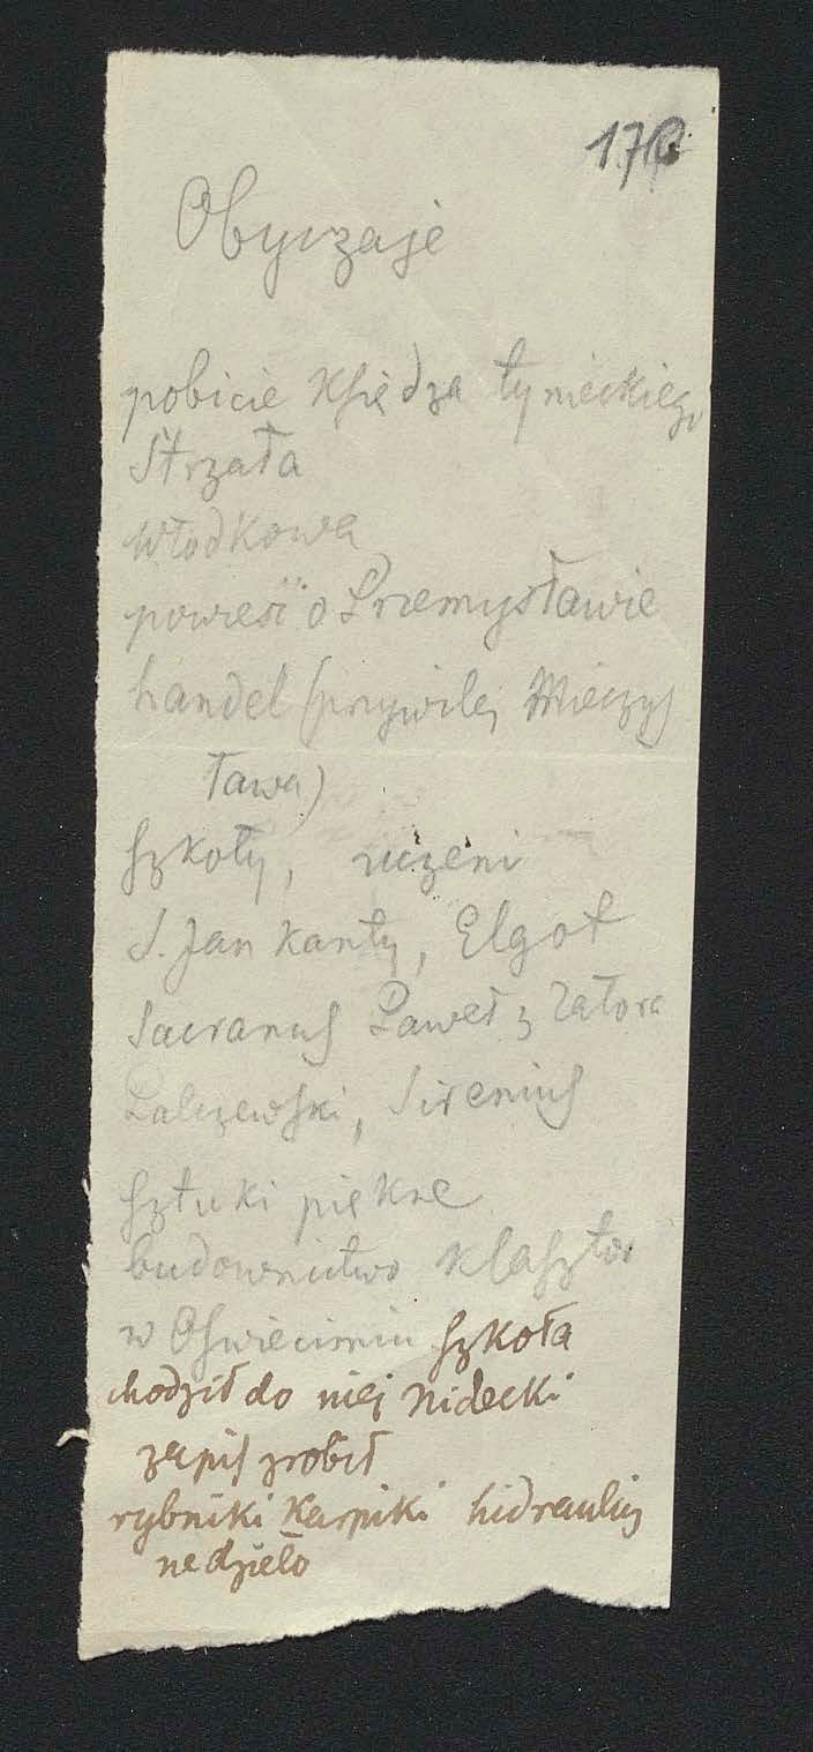 Obyczaje
pobicie księdza tynieckiego
Strzała
Włodkowa
powieść o Przemysławie
handel (przywilej Mieczys
ława)
szkoły, uczeni
S. Jan Kanty, Elgot
Sacranus Paweł z Zatora
Palczewski, Sirenius
sztuki piękne
budownictwo klasztor
w Oświęcimiu szkoła
chodził do niej Nidecki
zapis zrobił
rybniki Karpiki hidraulicz
ne dzieło